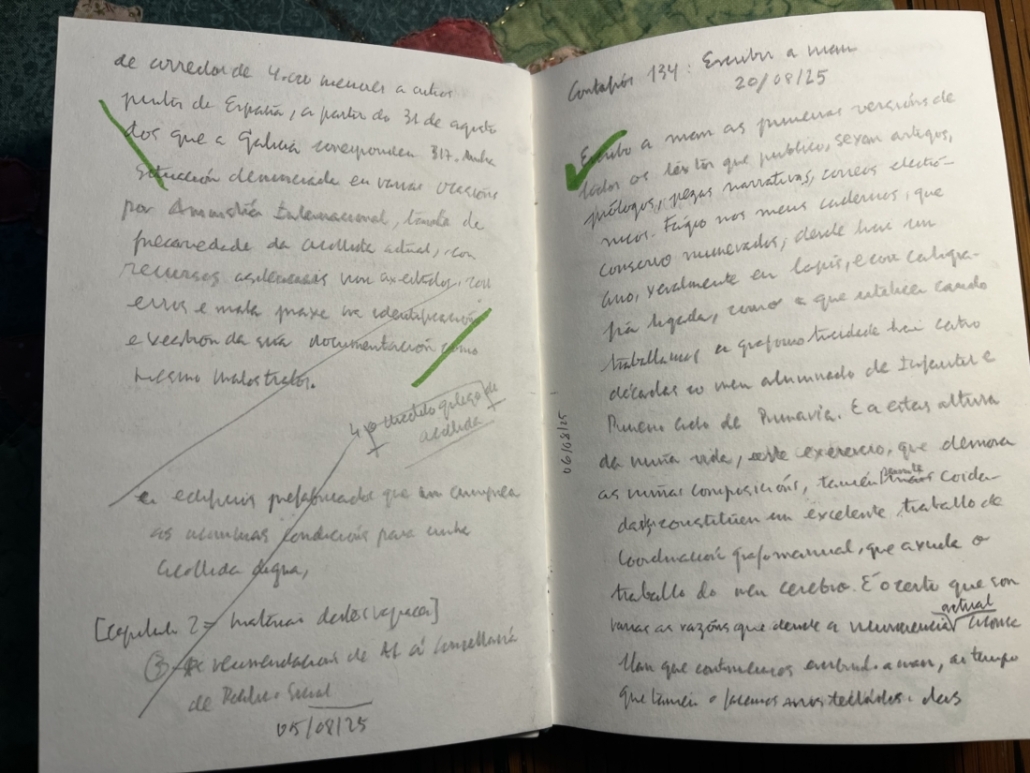 de arredor de 4.000 menores a outros
puntos de España, a partir do 31 de agosto
dos que a Galicia corresponden 317. Unha
situación denunciada en varias ocasións
por Amnistía Internacional, tanto de
precariedade da acollida actual, con
recursos non axeitados, con
erros e mala praxe na identificación
e xestión da súa documentación como
mesmo malos tratos.
4 modelo galego de
acollida
en edificios prefabricados que non cumpren
as mínimas condicións para unha
acollida digna,
[Capítulo 2 =
③ recomendacións de AI á Consellaría
de Política Social
05/08/25
06/08/25
Contapós 134: Escribir a man
20/08/25
Escribo a man as primeiras versións de
todos os textos que publico, sexan artigos,
prólogos, pezas narrativas, correos electró-
nicos. Fágoo nos meus cadernos, que
conservo numerados, desde hai un
ano, xeralmente en lapis, e con caligra-
fía ligada, como a que utilicei cando
traballamos a grafomotricidade hai catro
décadas co meu alumnado de Infantil e
Primeiro Ciclo de Primaria. E a estas alturas
da miña vida, este exercicio, que demora
as miñas composicións, tamén permite coida-
las, constitúen un excelente traballo de
coordinación grafomanual, que axuda o
traballo do meu cerebro. É o certo que son
varias as razóns que dende a neurociencia actual aconse
llan que continuemos escribindo a man, ao tempo
que tamén o facemos nos teclados das